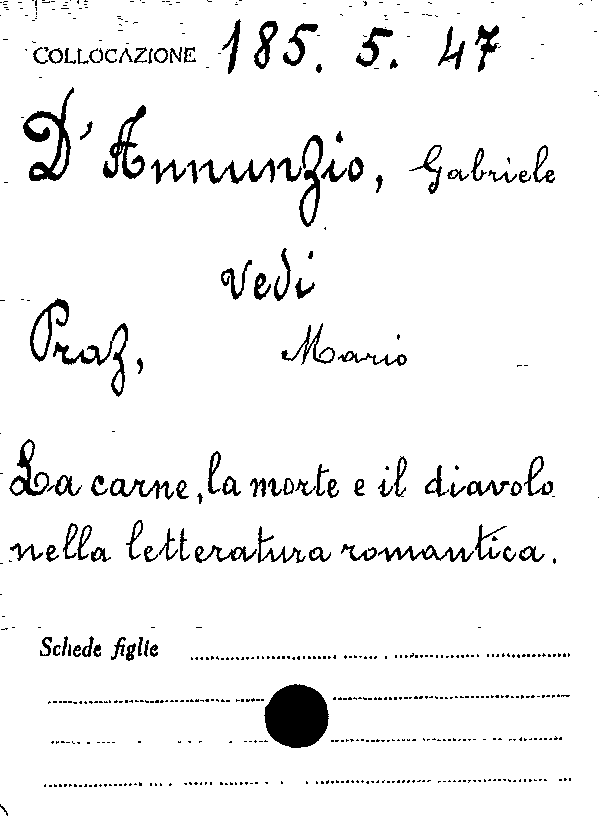 COLLOCAZIONE 185. 5. 47
D'Annunzio, Gabriele
vedi
Praz, Mario
La carne, la morte e il diavolo
nella letteratura romantica.
Schede figlie